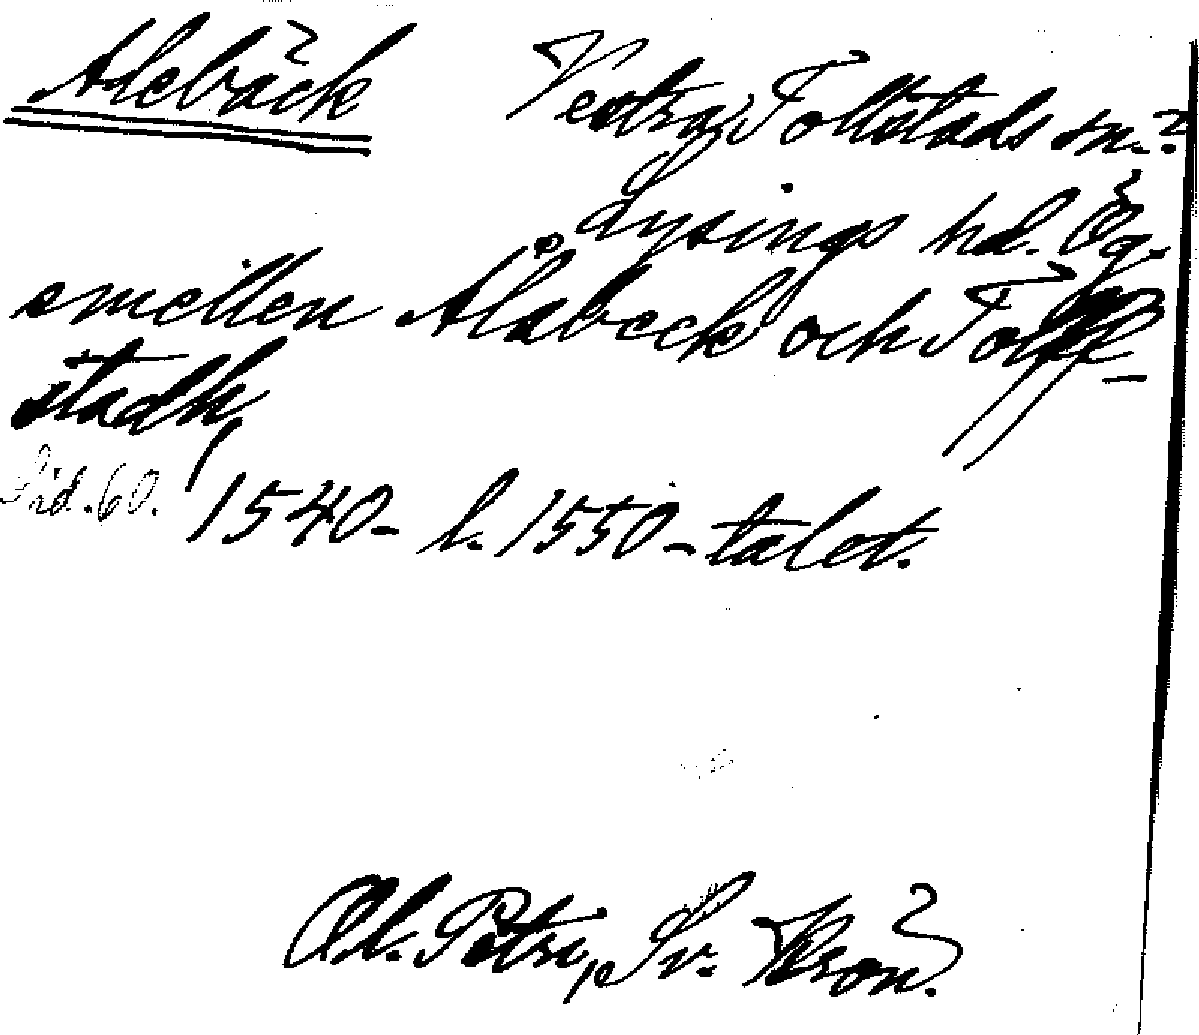 Alebäck Vestra Tollstads sn.?
Lysings hd. Ög.
emellen Ålabeck och Tolff-
stadh,
Sid. 60. 1540- l. 1550-talet.
Ol. Petri, Sv. Krön.